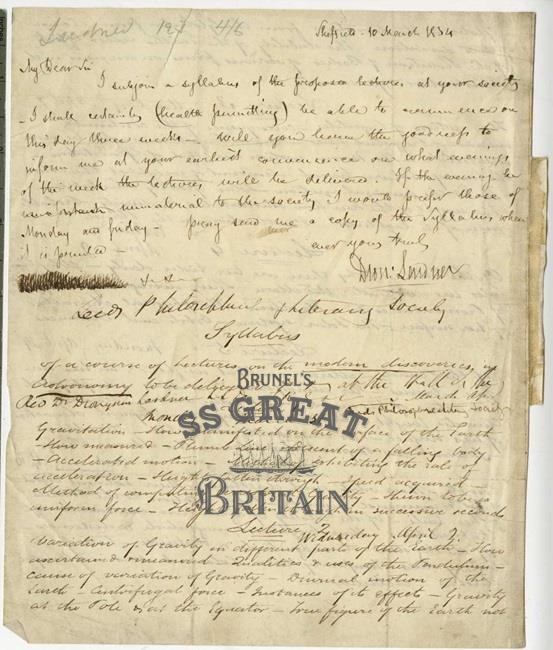 Lardner 4/6
Sheffield 10 March 1834
My Dear Sir
I subjoin a syllabus of the proposed lectures at your society
- I shall certainly (health permitting) be able to commence on
this day three weeks - Will you have the goodness to
inform me at your earliest convenience on what evenings
of the week the lectures will be delivered. If the evening be
immaterial to the society I would prefer those of
Monday and Friday - pray send me a copy of the Syllabus when
it is printed
ever yours truly
Dion: Lardner
Leeds Philosophical & Literary Society
Syllabus
of a course of Lectures on the modern discoveries in
Astronomy to be delivered at the Hall of the
Rev Dr Dionysius Lardner March
BRUNEL'S
SS GREAT
BRITAIN
Philosophical Society
Gravitation - How manifested on the surface of the Earth
- How measured - Plumb Line - descent of a falling body
- Accelerated motion - exhibiting the rate of
acceleration - Height fallen through - speed acquired -
Method of computing - Shewn to be a
uniform force - in successive seconds
Lecture 2
Wednesday April 2.
Variation of Gravity in different parts of the Earth - How
ascertained & measured - Qualities & uses of the Pendulum -
cause of variation of Gravity - Diurnal motion of the
Earth - Centrifugal force - Instances of its effects - Gravity
at the Pole & at the Equator - True figure of the Earth not